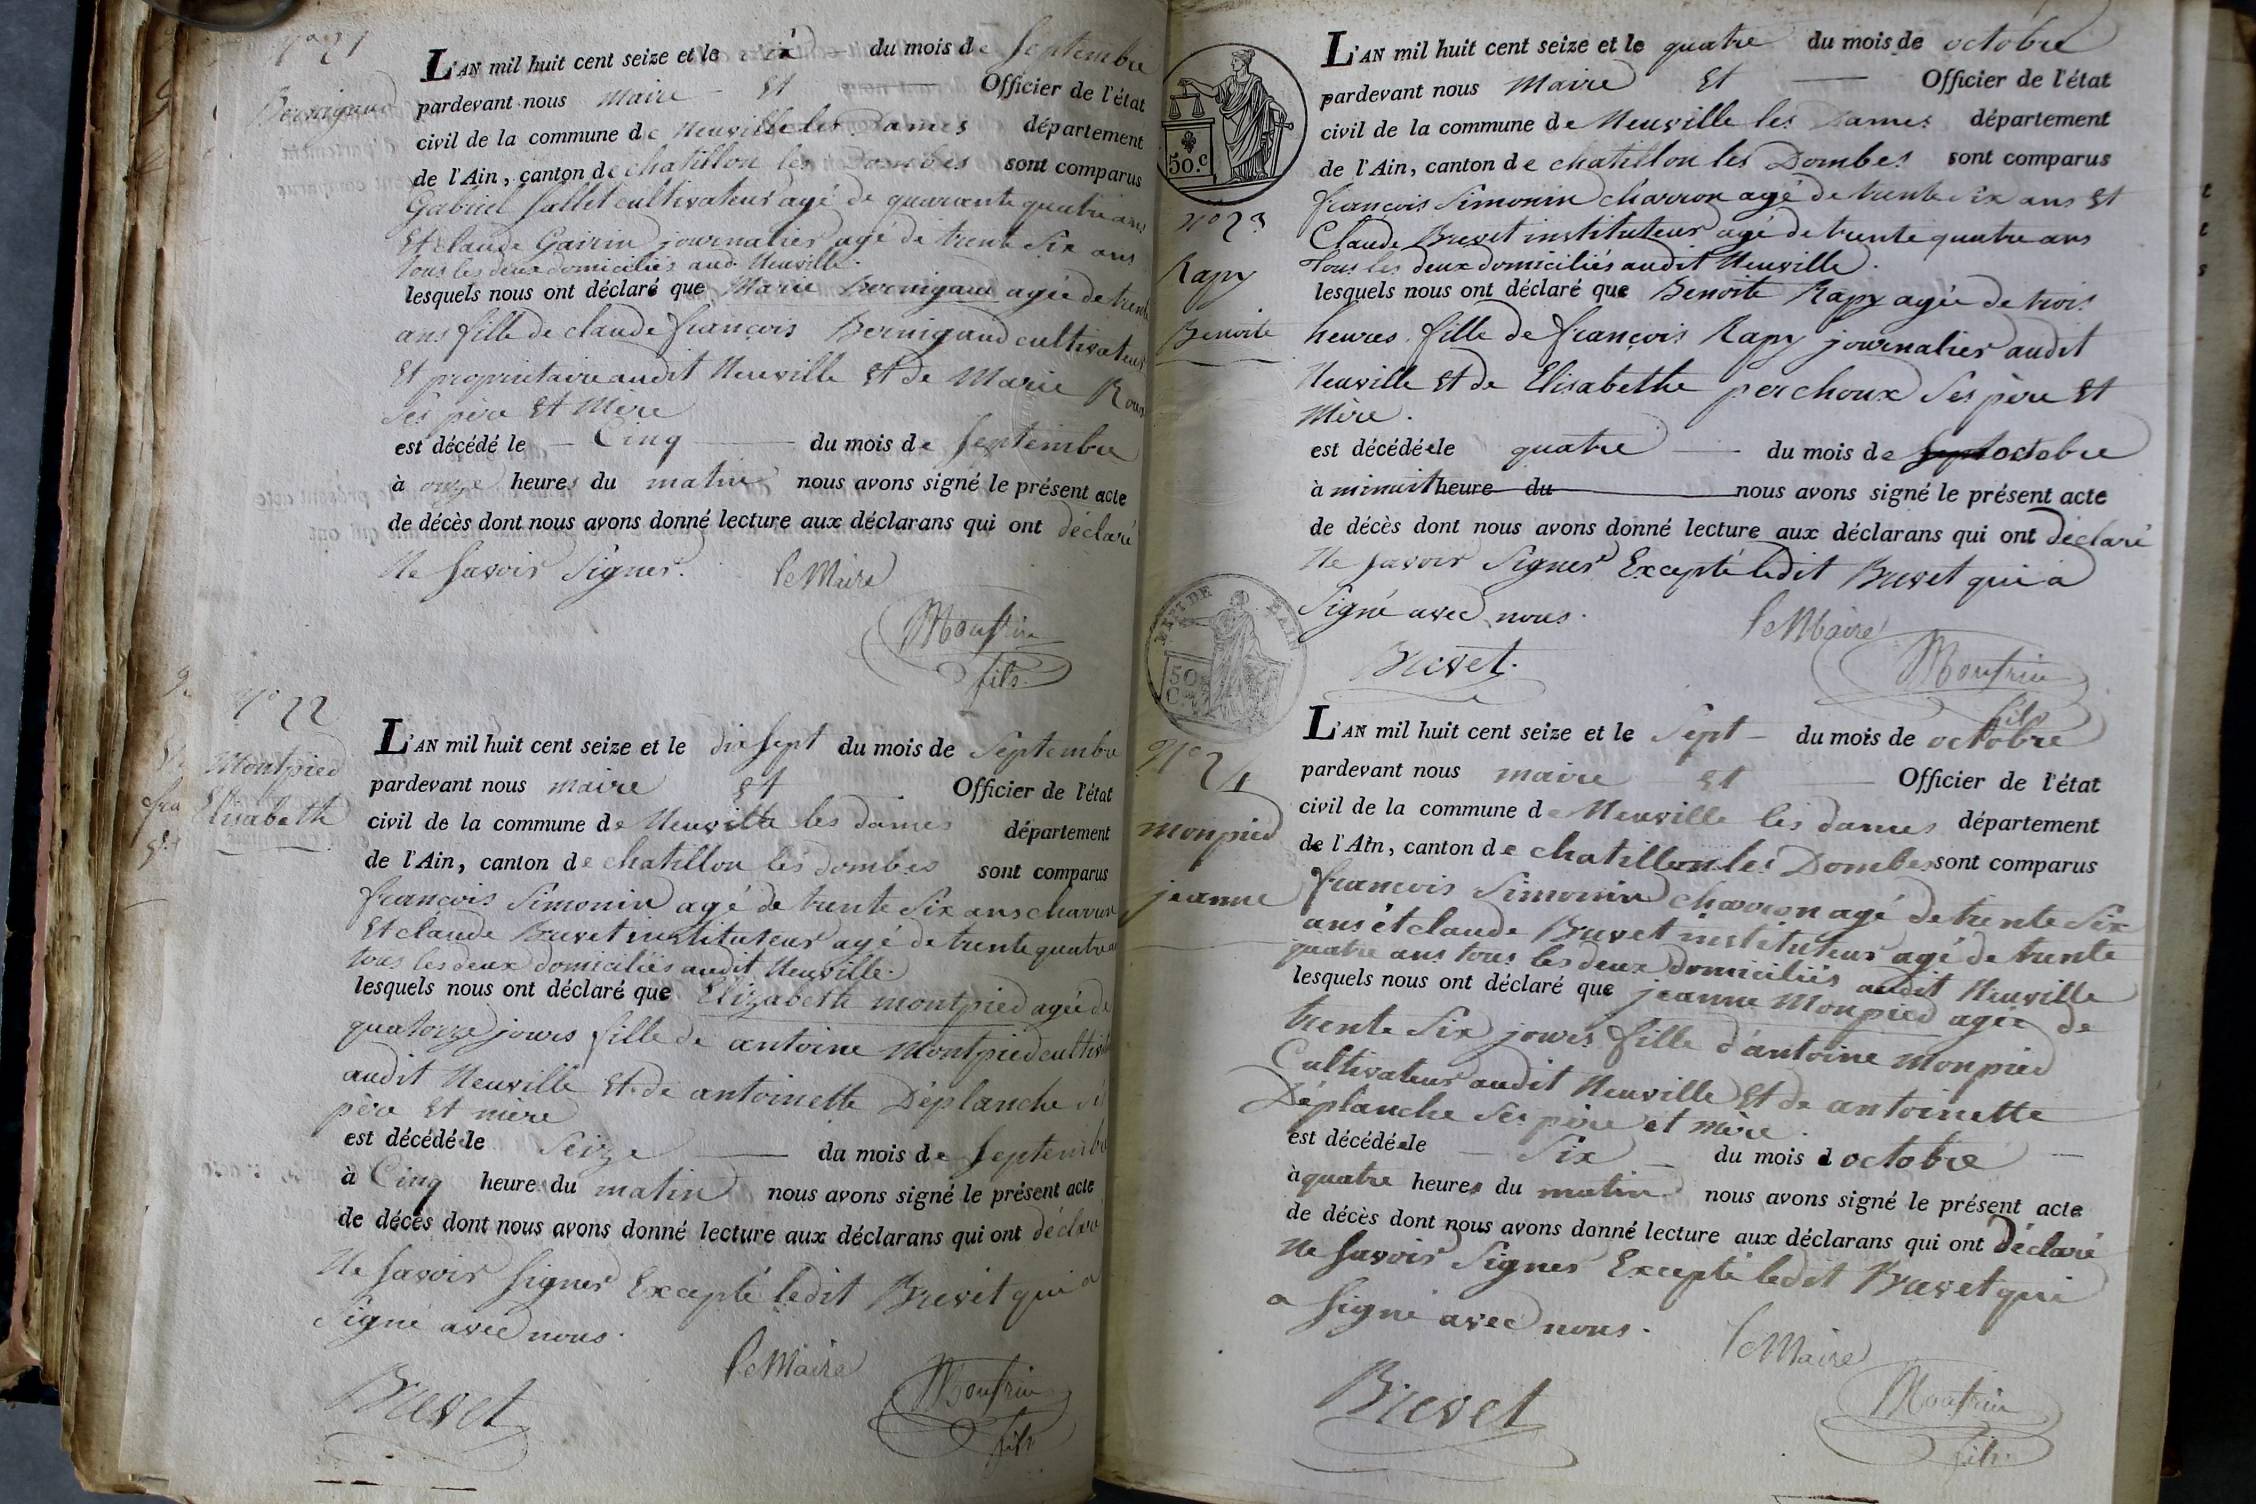 n° 21
Bernigaud
L'AN mil huit cent seize et le six du mois de Septembre
pardevant nous maire et Officier de l'état
civil de la commune de Neuville les Dames département
de l'Ain, canton de chatillon les Dombes sont comparus
Gabriel Sallet cultivateur agé de quarante quatre ans
Et Claude Gairin journalier agé de trente Six ans
tous les deux domiciliés aud. Neuville.
lesquels nous ont déclaré que Marie Bernigaud agée de trente
ans fille de claude françois Bernigaud cultivateur
Et propriétaire audit Neuville Et de Marie Roux
Ses père Et Mere
est décédé le Cinq du mois de Septembre
à onze heures du matin nous avons signé le présent acte
de décès dont nous avons donné lecture aux déclarans qui ont déclaré
Ne Savoir Signer. le Maire
Monfrin
fils
n° 22
Montpied
Elisabeth
L'AN mil huit cent seize et le dix Sept du mois de Septembre
pardevant nous maire et Officier de l'état
civil de la commune de Neuville les dames département
de l'Ain, canton de chatillon les dombes sont comparus
françois Simonin agé de trente Six ans charron
Et claude Brevet instituteur agé de trente quatre a
tous les deux domiciliés audit Neuville.
lesquels nous ont déclaré que Elizabeth montpied agée de
quatorze jours fille de antoine Montpied cultiv
audit Neuville Et de antoinette Déplanche sès
père Et mère
est décédé le Seize du mois de Septembre
à Cinq heure du matin nous avons signé le présent acte
de décès dont nous avons donné lecture aux déclarans qui ont déclaré
Ne Savoir Signer Excepté ledit Brevet qui a
Signé avec nous.
le Maire
Brevet
Monfrin
fils
50.c
n° 23
Rapy
Benoite
L'AN mil huit cent seize et le quatre du mois de octobre
pardevant nous Maire Et Officier de l'état
civil de la commune de Neuville les Dames département
de l'Ain, canton de chatillon les Dombes sont comparus
françois Simonin charron agé de trente six ans Et
Claude Brevet instituteur agé de trente quatre ans
tous les deux domiciliés audit Neuville.
lesquels nous ont déclaré que Benoite Rapy agée de trois
heures fille de françois Rapy journalier audit
Neuville Et de Elisabethe perchoux Ses père Et
Mère.
est décédée le quatre du mois de Sept octobre
à minuit heure du nous avons signé le présent acte
de décès dont nous avons donné lecture aux déclarans qui ont déclaré
Ne Savoir Signer Excepté ledit Brevet qui a
Signé avec nous.
le Maire
Brevet.
Monfrin
fils
DEPT DE L'AIN
50
C.
N° 24
monpied
jeanne
L'AN mil huit cent seize et le Sept du mois de octobre
pardevant nous maire Et Officier de l'état
civil de la commune de Neuville les dames département
de l'Ain, canton de chatillon les Dombes sont comparus
françois Simonin charron agé de trente Six
ans et claude Brevet instituteur agé de trente
quatre ans tous les deux domiciliés audit Neuville
lesquels nous ont déclaré que jeanne Monpied agée de
trente Six jours fille d'antoine monpied
Cultivateur audit Neuville Et de antoinette
Déplanche Ses père et mère.
est décédée le Six du mois d octobre
à quatre heures du matin nous avons signé le présent acte
de décès dont nous avons donné lecture aux déclarans qui ont déclaré
Ne Savoir Signer Excepté ledit Brevet qui
a Signé avec nous.
le Maire
Brevet
Monfrin
fils